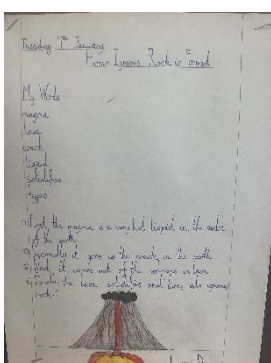 Tuesday 17th January
How Igneous Rock is Formed
My Words
magma
lava
crack
liquid
solidifies
types
First, the magma is a very hot liquid in the
of the earth
it goes up the cracks in the earth
it comes out of the volcano as lava
Finally the lava solidifies and turns into igneous
rock.